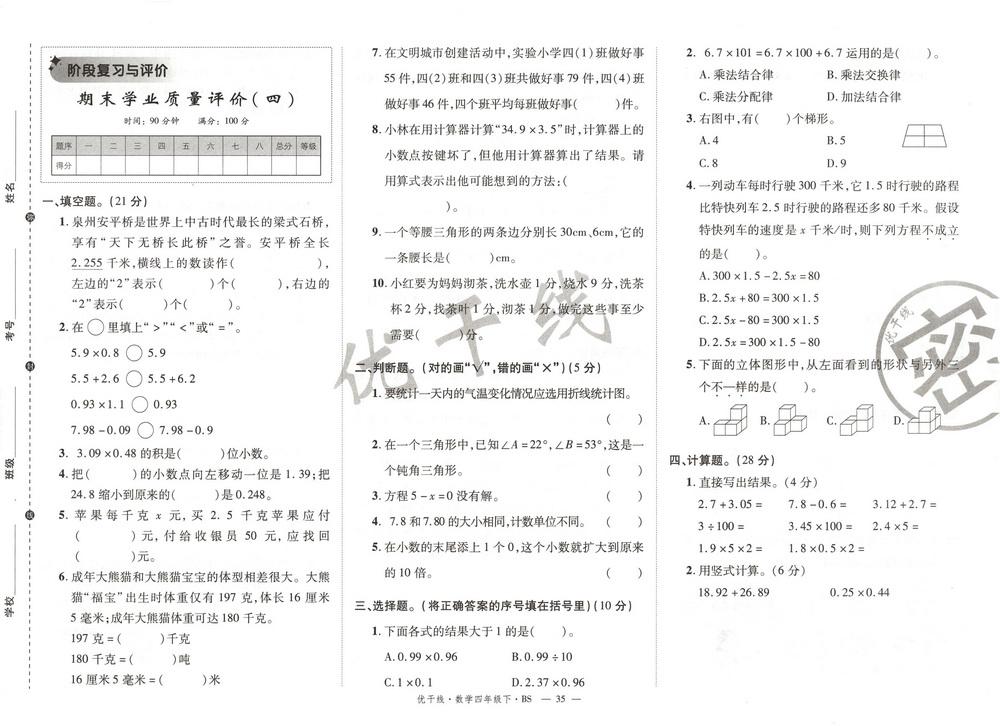 学校
班级
考号
姓名
阶段复习与评价
期末学业质量评价(四)
时间:90分钟 满分:100分
题序 一 二 三 四 五 六 七 八 总分 等级
得分
一、填空题。(21分)
1. 泉州安平桥是世界上中古时代最长的梁式石桥,
享有“天下无桥长此桥”之誉。安平桥全长
2.255千米,横线上的数读作( ),
左边的“2”表示( )个( ),右边的
“2”表示( )个( )。
2. 在○里填上“>”“<”或“=”。
5.9×0.8 ○ 5.9
5.5+2.6 ○ 5.5+6.2
0.93×1.1 ○ 0.93
7.98-0.09 ○ 7.98-0.9
3. 3.09×0.48的积是( )位小数。
4. 把( )的小数点向左移动一位是1.39;把
24.8缩小到原来的( )是0.248。
5. 苹果每千克x元,买2.5千克苹果应付
( )元,付给收银员50元,应找回
( )元。
6. 成年大熊猫和大熊猫宝宝的体型相差很大。大熊
猫“福宝”出生时体重仅有197克,体长16厘米
5毫米;成年大熊猫体重可达180千克。
197克=( )千克
180千克=( )吨
16厘米5毫米=( )米
7. 在文明城市创建活动中,实验小学四(1)班做好事
55件,四(2)班和四(3)班共做好事79件,四(4)班
做好事46件,四个班平均每班做好事( )件。
8. 小林在用计算器计算“34.9×3.5”时,计算器上的
小数点按键坏了,但他用计算器算出了结果。请
用算式表示出他可能想到的方法:(
)。
9. 一个等腰三角形的两条边分别长30cm、6cm,它的
一条腰长是( )cm。
10. 小红要为妈妈沏茶,洗水壶1分,烧水9分,洗茶
杯2分,找茶叶1分,沏茶1分,做完这些事至少
需要( )分。
二、判断题。(对的画“√”,错的画“×”)(5分)
1. 要统计一天内的气温变化情况应选用折线统计图。
( )
2. 在一个三角形中,已知∠A=22°,∠B=53°,这是一
个钝角三角形。 ( )
3. 方程5-x=0没有解。 ( )
4. 7.8和7.80的大小相同,计数单位不同。 ( )
5. 在小数的末尾添上1个0,这个小数就扩大到原来
的10倍。 ( )
三、选择题。(将正确答案的序号填在括号里)(10分)
1. 下面各式的结果大于1的是( )。
A. 0.99×0.96 B. 1÷10
C. 1×0.1 D. 2.37×0.96
2. 6.7×101=6.7×100+6.7运用的是( )。
A. 乘法结合律 B. 乘法交换律
C. 乘法分配律 D. 加法结合律
3. 右图中,有( )个梯形。
A. 4 B. 5
C. 8 D. 9
4. 一列动车每时行驶300千米,它1.5时行驶的路程
比特快列车2.5时行驶的路程还多80千米。假设
特快列车的速度是x千米/时,则下列方程不成立
的是( )。
A. 300×1.5-2.5x=80
B. 2.5x+80=300×1.5
C. 2.5x-80=300×1.5
D. 2.5x=300×1.5-80
5. 下面的立体图形中,从左面看到的形状与另外三
个不一样的是( )。
A. B. C. D.
四、计算题。(28分)
1. 直接写出结果。(4分)
2.7+3.05= 7.8-0.6= 3.12+2.7=
3÷100= 3.45×100= 2.4×5=
1.9×5×2= 1.8×0.5×2=
2. 用竖式计算。(6分)
18.92+26.89 0.25×0.44
优干线
优干线
密
优干线·数学四年级下·BS — 35 —